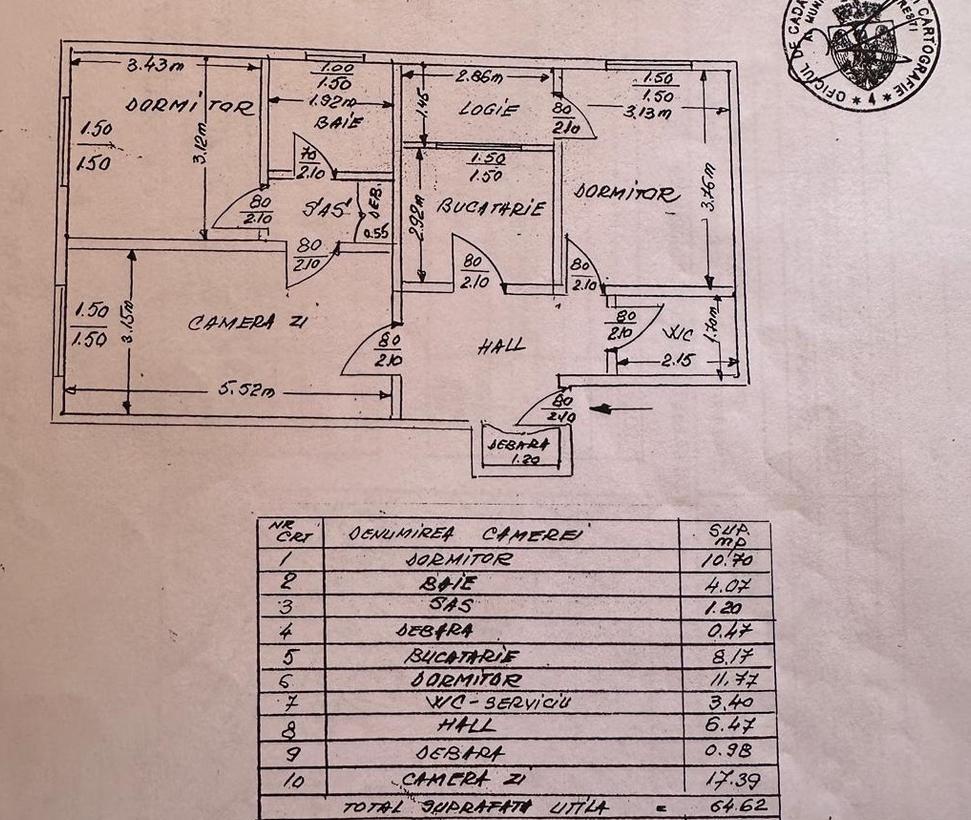 OFICIUL DE CADA
CARTOGRAFIE
MUNI
REȘTI
★ 4 ★
3.43m
1.00
1.50
1.92m
BAIE
2.86m
LOGIE
1.45
1.50
1.50
3.13m
DORMITOR
80
2.10
1.50
1.50
3.12m
70
2.10
1.50
1.50
DORMITOR
3.76m
BUCATARIE
2.92m
SAS
DEB.
0.55
80
2.10
80
2.10
80
2.10
80
2.10
1.50
1.50
3.15m
CAMERA ZI
80
2.10
HALL
80
2.10
WC
1.70m
2.15
5.52m
80
2.10
DEBARA
1.20
NR CRT DENUMIREA CAMEREI SUP. mp
1 DORMITOR 10.70
2 BAIE 4.07
3 SAS 1.20
4 DEBARA 0.47
5 BUCATARIE 8.17
6 DORMITOR 11.77
7 WC-SERVICIU 3.40
8 HALL 6.47
9 DEBARA 0.98
10 CAMERA ZI 17.39
TOTAL SUPRAFATA UTILA = 64.62